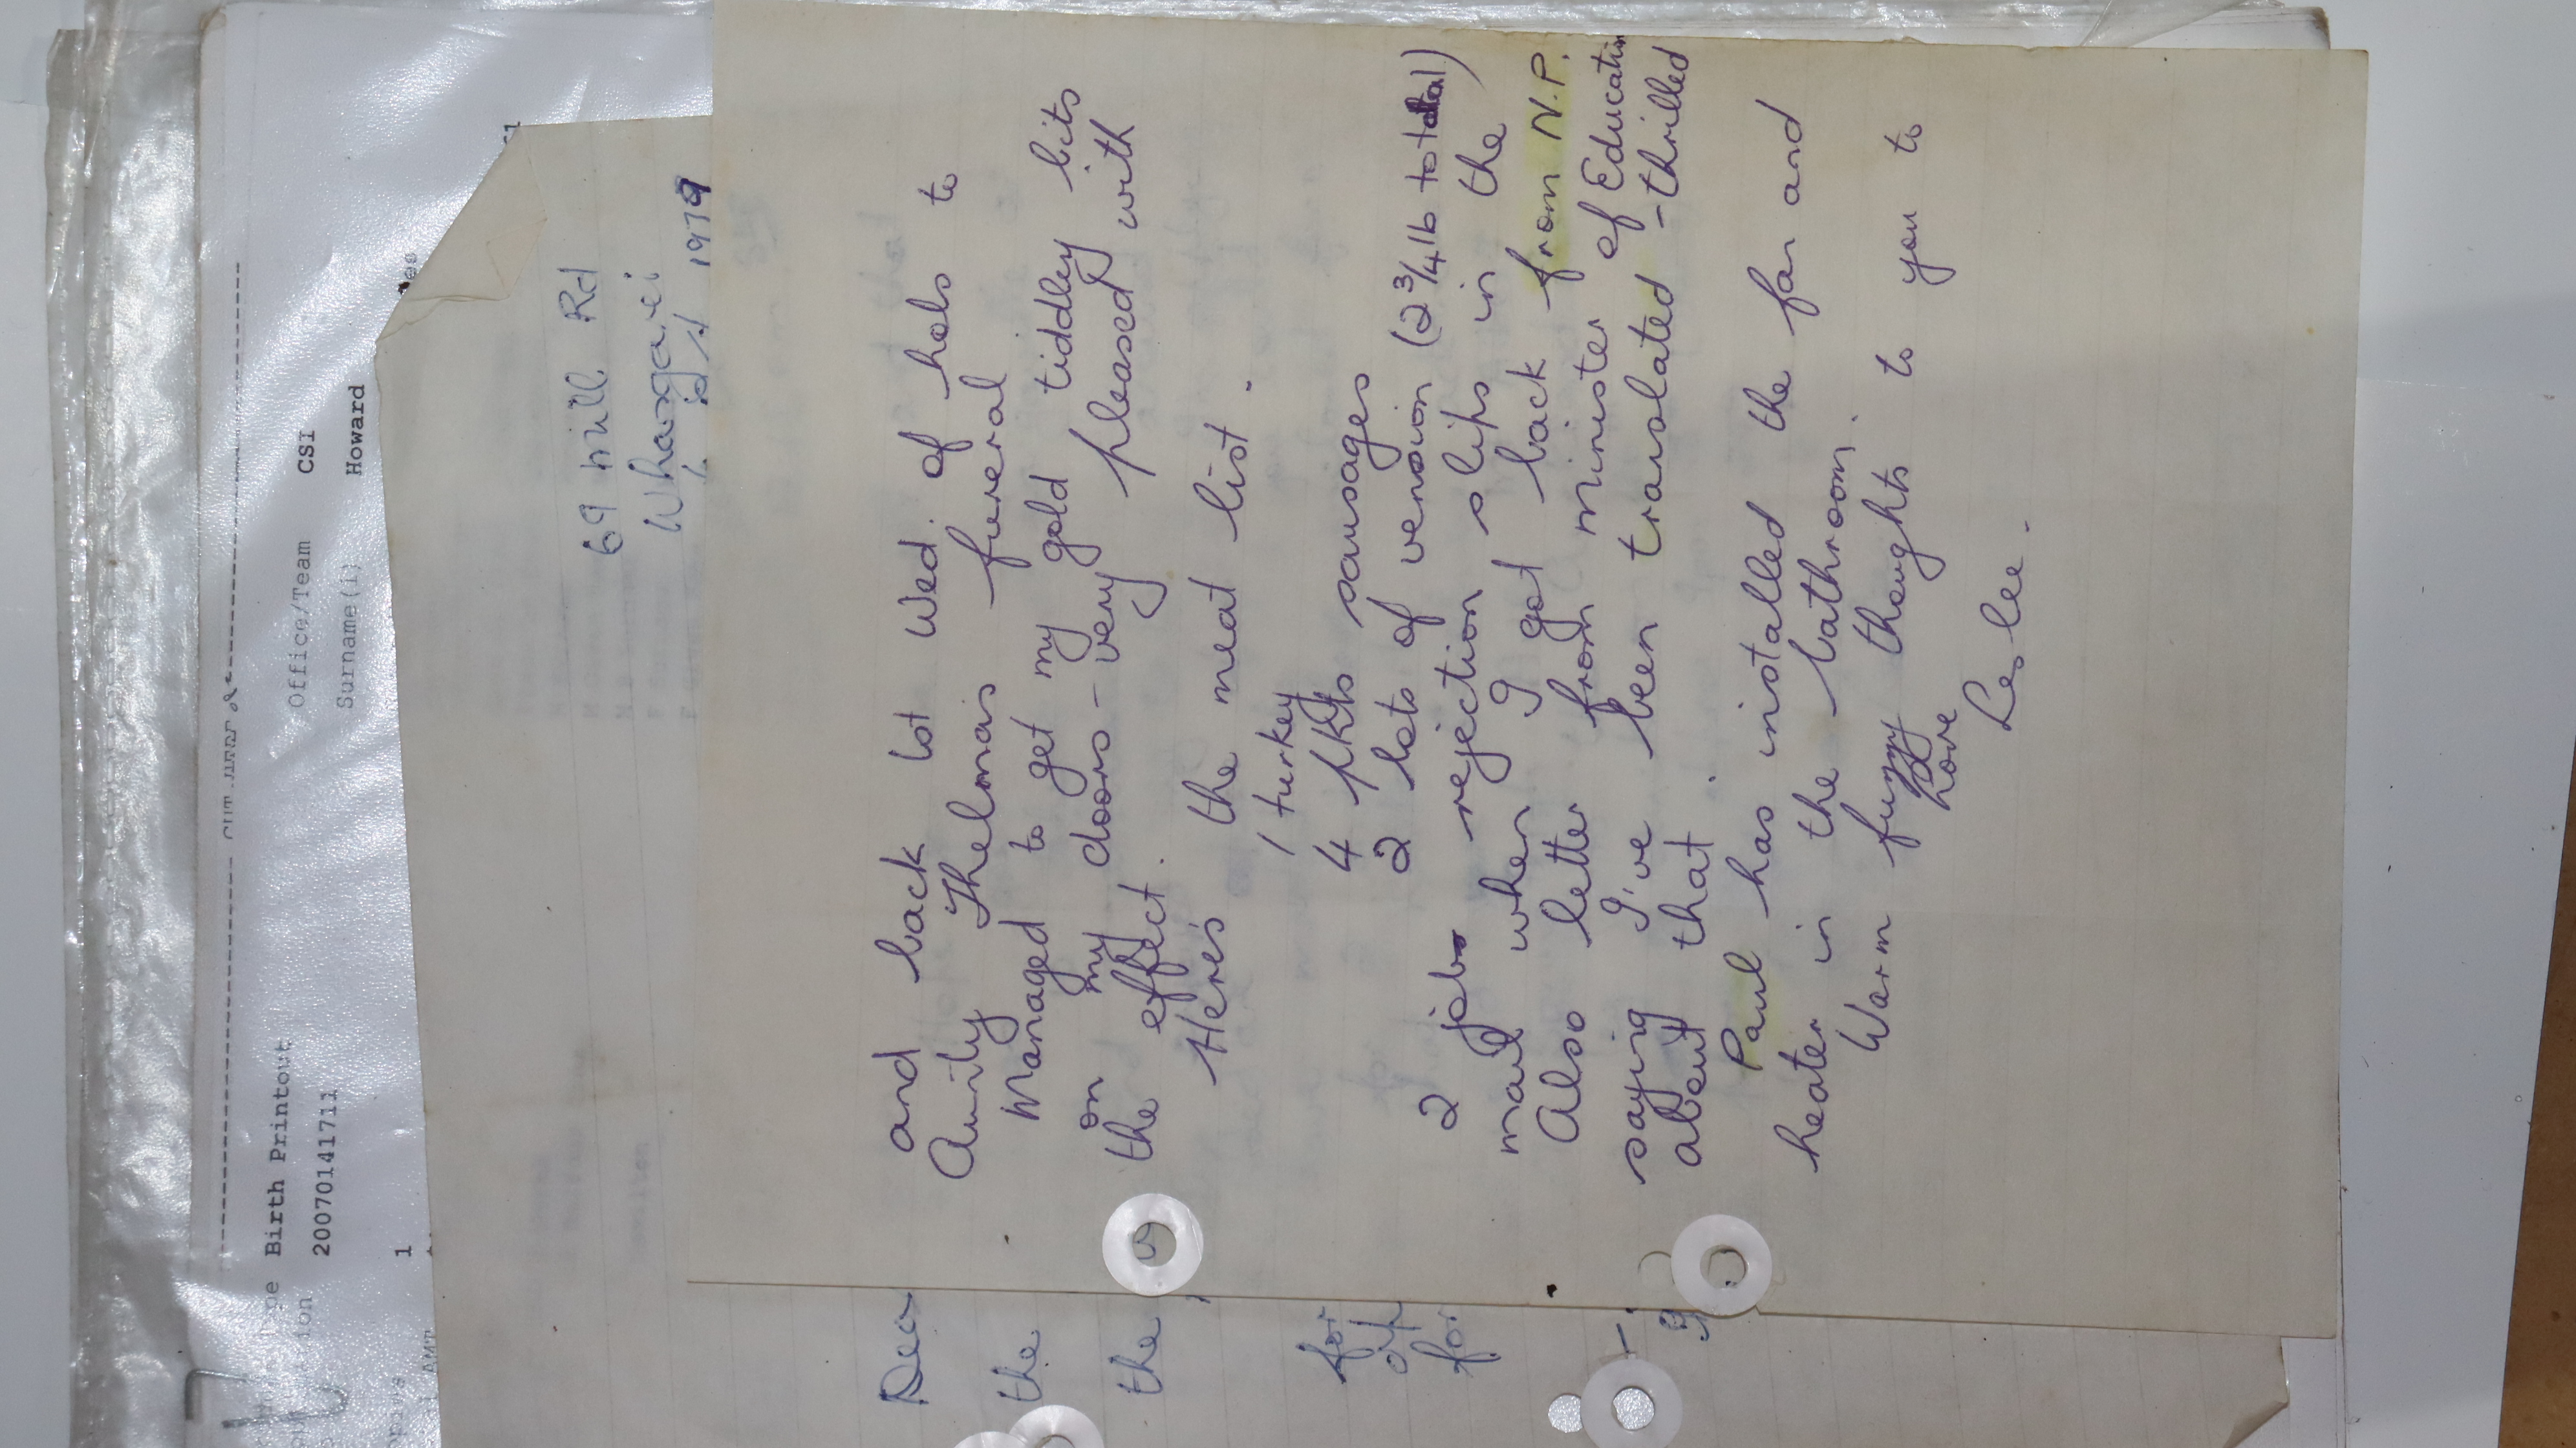 Birth Printout
2007014171711
Office/Team CSI
Surname(1) Howard
1
69 Mill Rd
Whangarei
1979
Dear
the
the
for
for
and back lot Wed. of hols to
Aunty Thelma's funeral
Managed to get my gold tiddley bits
on my doors - very pleased with
the effect.
Here's the meat list.
1 turkey
4 pkts sausages
2 lots of venision (2 3/4 lb total)
2 job rejection slips in the
mail when I got back from N.P.
Also letter from minister of Education
saying I've been translated - thrilled
about that.
Paul has installed the fan and
heater in the bathroom.
Warm fuzzy thoughts to you to
Love
Leslee.